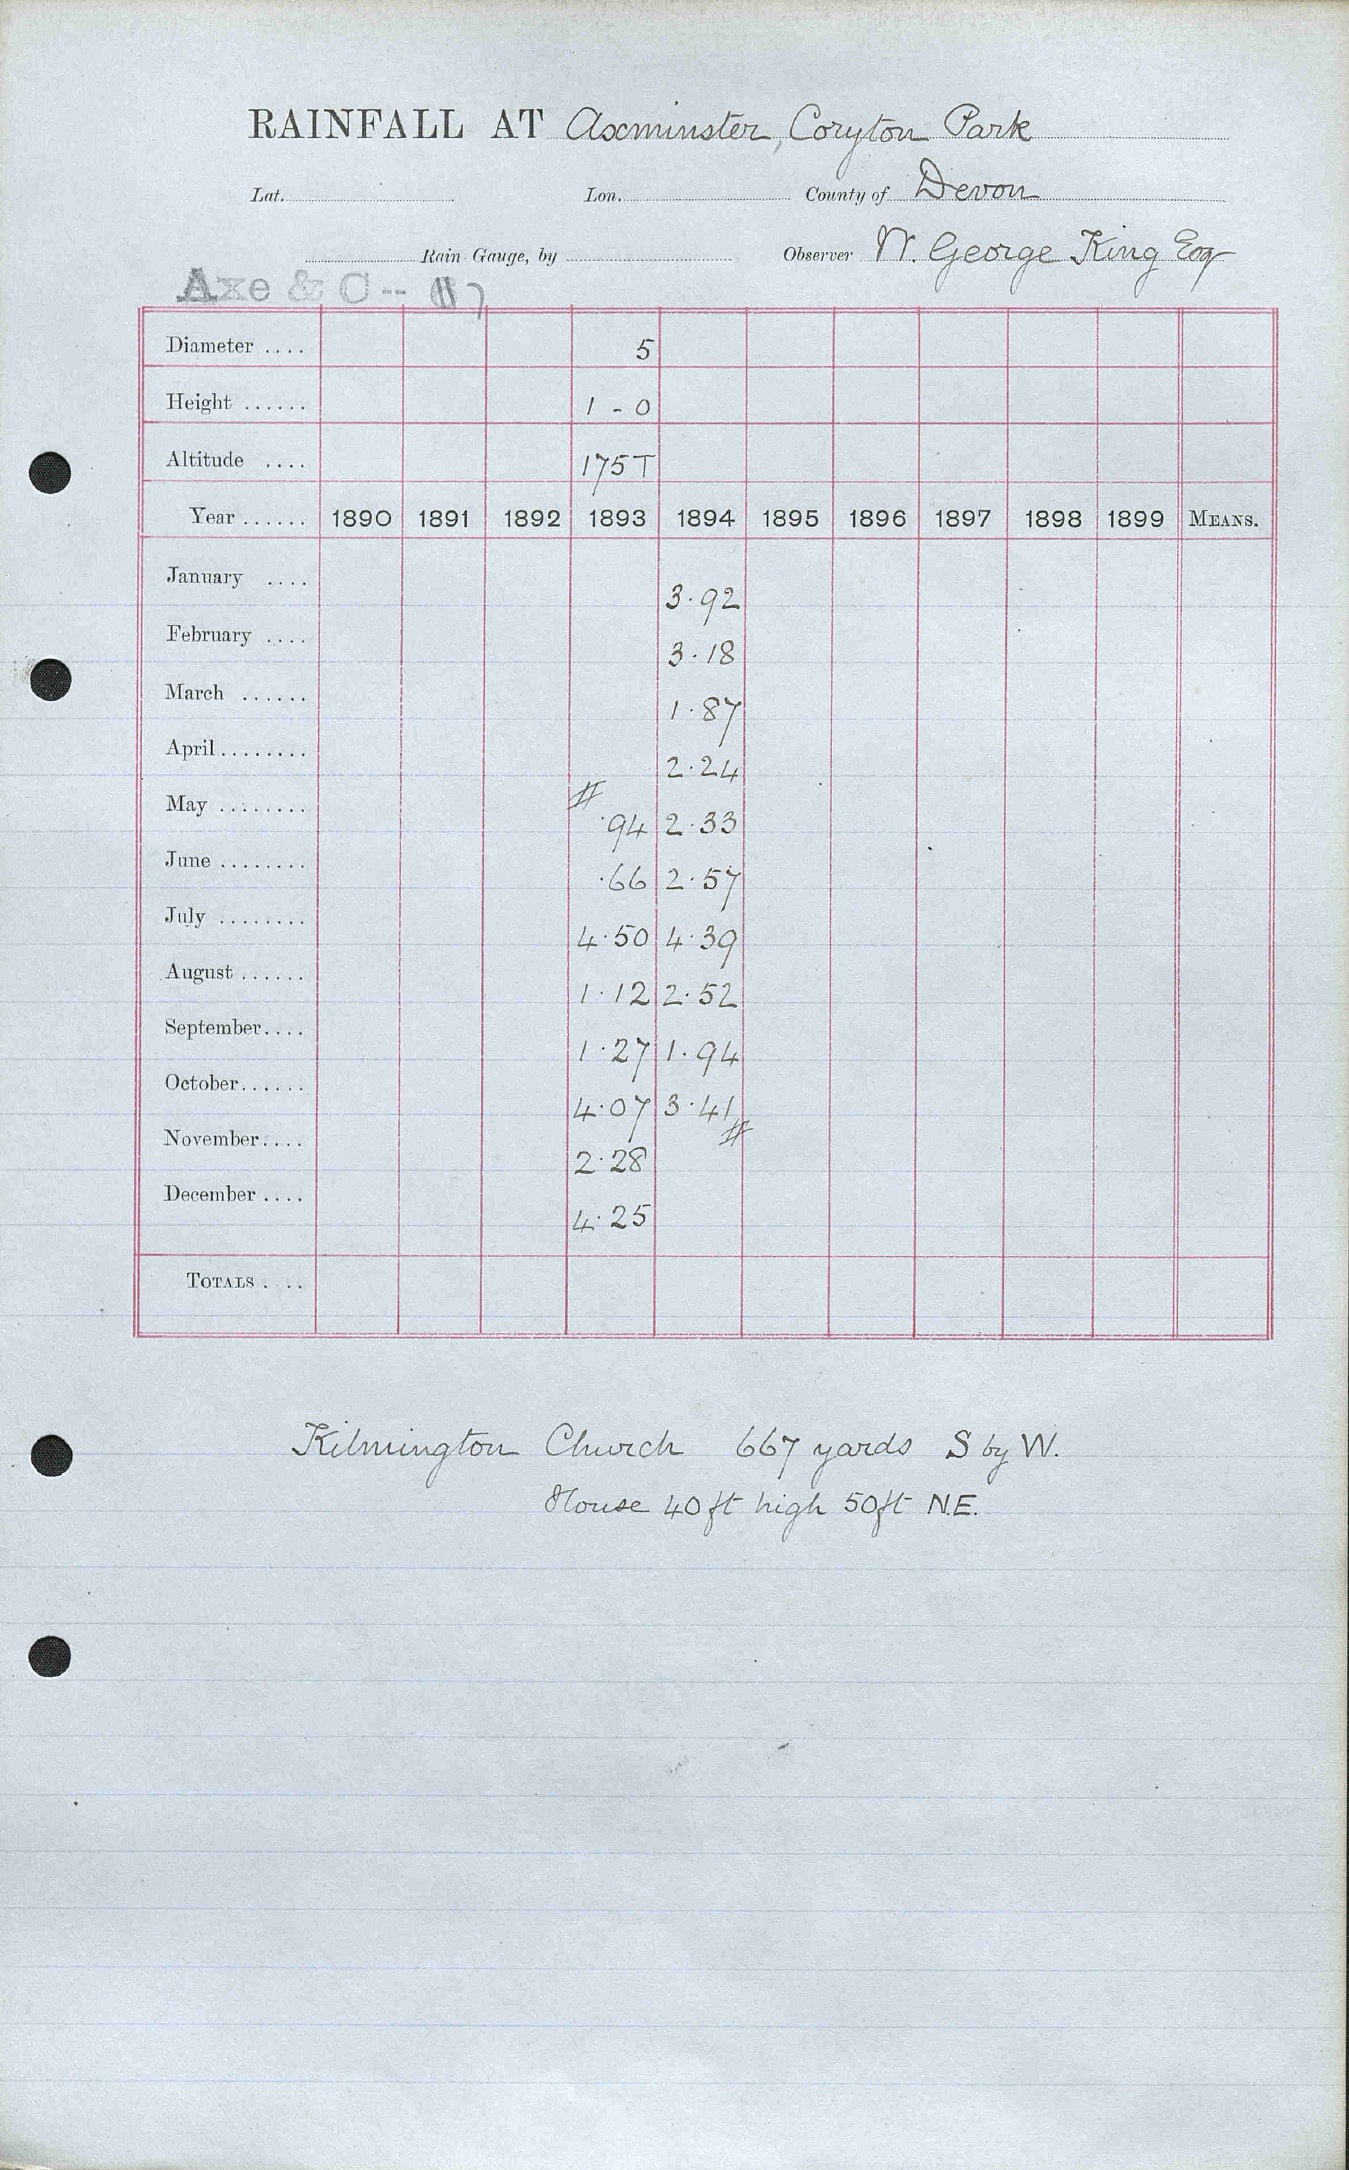 RAINFALL AT Axminster, Coryton Park
Lat. Lon. County of Devon
Rain Gauge, by Observer W. George King Esq
Axe & C --
Diameter .... 5
Height ...... 1 - 0
Altitude .... 175T
Year ...... 1890 1891 1892 1893 1894 1895 1896 1897 1898 1899 MEANS.
January .... 3.92
February .... 3.18
March ...... 1.87
April ........ 2.24
#
May ........ .94 2.33
June ........ .66 2.57
July ........ 4.50 4.39
August ...... 1.12 2.52
September.... 1.27 1.94
October...... 4.07 3.41
#
November.... 2.28
December .... 4.25
TOTALS ....
Kilmington Church 667 yards S by W.
House 40ft high 50ft N.E.